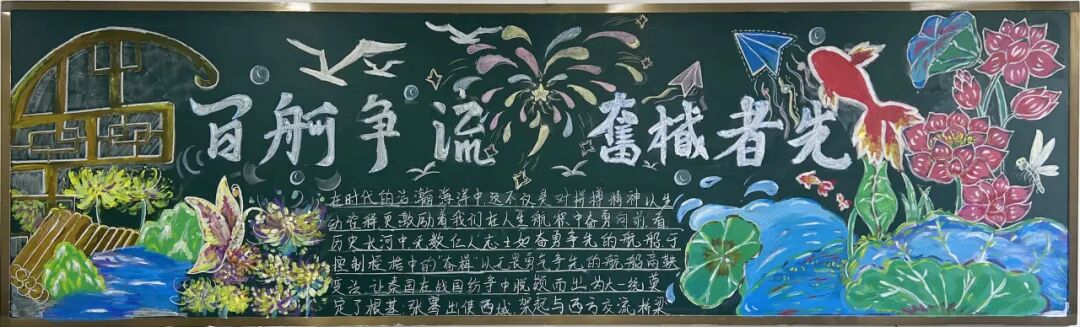 百舸争流 奮楫者先
在时代的浩瀚海洋中这不仅是对拼搏精神以生
动诠释更激励着我们在人生航程中奋勇向前看
历史长河中无数仁人志士如奋勇争先的航船于
控制桎梏中的"奋楫"以无畏勇气争先的航船商鞅
变法,让秦国在战国纷争中脱颖而出为大一统奠
定了根基;张骞出使西域,架起与西方交流桥梁